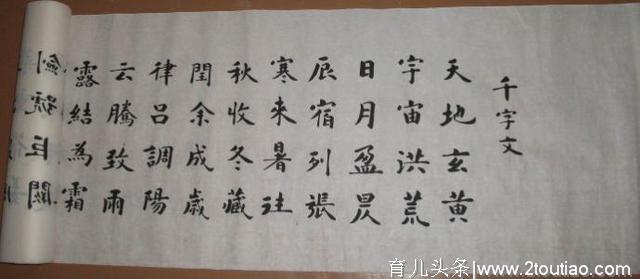 千字文
天地玄黄
宇宙洪荒
日月盈昃
辰宿列張
寒來暑往
秋收冬藏
閏余成歲
律呂調陽
云騰致雨
露結為霜
劍號巨闕
育儿头条/www.2toutiao.com